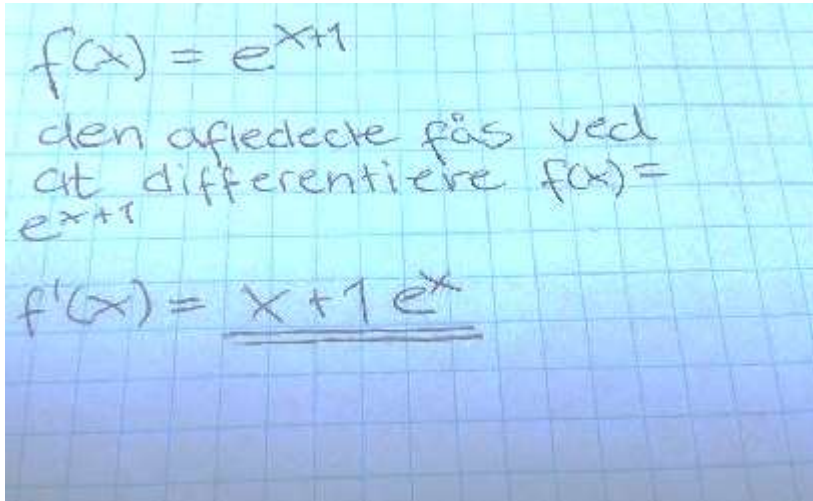 f(x) = e^{x+1}
den afledede fås ved
at differentiere f(x) =
e^{x+1}
f'(x) = x + 1 e^x